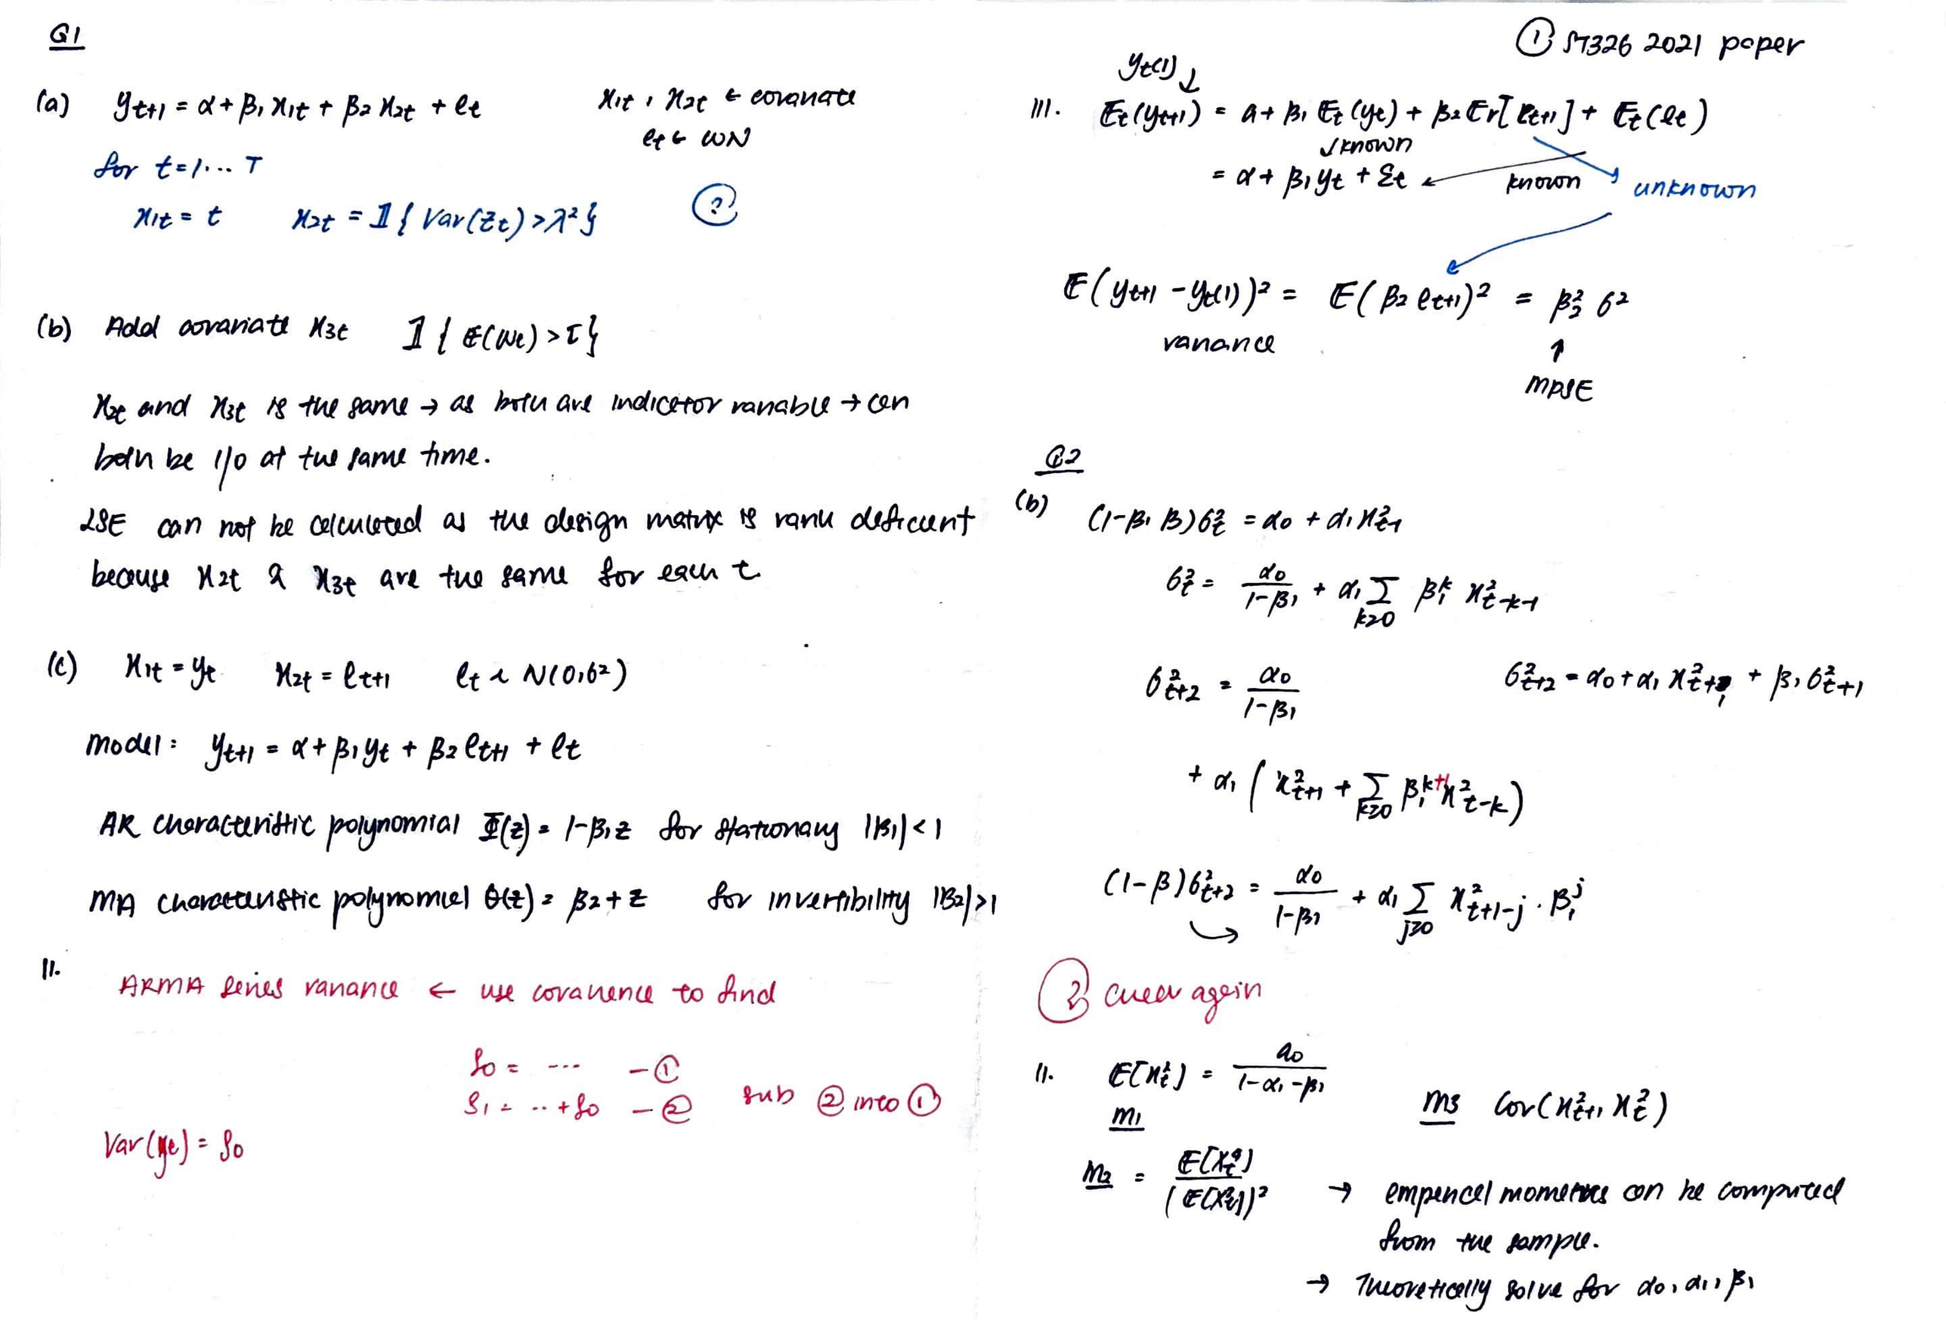 Q1
(a) y_{t+1} = α + β₁ x_{1t} + β₂ x_{2t} + e_t
x_{1t}, x_{2t} ← covariate
e_t ← WN
for t = 1... T
x_{1t} = t x_{2t} = 𝟙{ Var(Z_t) > λ² } ?
(b) Add covariate x_{3t} 𝟙{ 𝔼(W_t) > τ }
x_{2t} and x_{3t} is the same → as both are indicator variable → can
both be 1/0 at the same time.
LSE can not be calculated as the design matrix is rank deficient
because x_{2t} & x_{3t} are the same for each t
(c) x_{1t} = y_t x_{2t} = e_{t+1} e_t ~ N(0, σ²)
model: y_{t+1} = α + β₁ y_t + β₂ e_{t+1} + e_t
AR characteristic polynomial Φ(z) = 1 - β₁z for stationary |β₁| < 1
MA characteristic polynomial θ(z) = β₂ + z for invertibility |β₂| > 1
II.
ARMA series variance ← use covariance to find
ρ₀ = ... - ①
ρ₁ = .. + ρ₀ - ② sub ② into ①
Var(y_t) = ρ₀
① ST326 2021 paper
y_t(1) ↓
III. 𝔼_t(y_{t+1}) = α + β₁ 𝔼_t(y_t) + β₂ 𝔼_t[e_{t+1}] + 𝔼_t(e_t)
↓ known
= α + β₁ y_t + ε_t ← known unknown
𝔼(y_{t+1} - y_t(1))² = 𝔼(β₂ e_{t+1})² = β₂² σ²
variance ↑
MPSE
Q2
(b) (1 - β₁ B) σ_t² = α₀ + α₁ x²_{t-1}
σ_t² = α₀/(1-β₁) + α₁ Σ_{k≥0} β₁^k x²_{t-k-1}
σ²_{t+2} = α₀/(1-β₁) σ²_{t+2} = α₀ + α₁ x²_{t+1} + β₁ σ²_{t+1}
+ α₁ ( x²_{t+1} + Σ_{k≥0} β₁^{k+1} x²_{t-k} )
(1-β) σ²_{t+2} = α₀/(1-β₁) + α₁ Σ_{j≥0} x²_{t+1-j} · β₁^j
? check again
II. 𝔼[x_t²] = α₀/(1-α₁-β₁)
m₁
m₃ Cov(x²_{t+1}, x²_t)
m₂ = 𝔼[X_t⁴]/(𝔼[X_t²])² → empirical moments can be computed
from the sample.
→ Theoretically solve for α₀, α₁, β₁